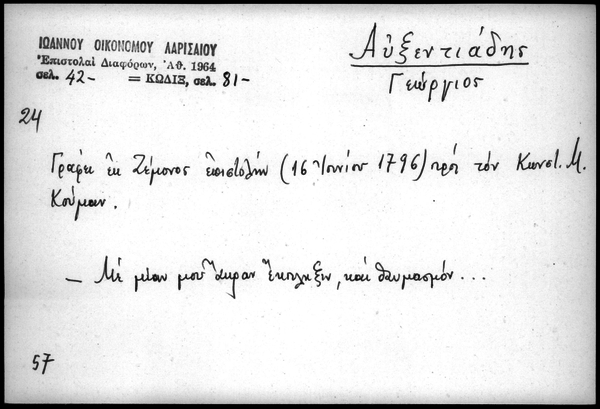 ΙΩΑΝΝΟΥ ΟΙΚΟΝΟΜΟΥ ΛΑΡΙΣΑΙΟΥ
Ἐπιστολαὶ Διαφόρων, Ἀθ. 1964
σελ. 42- = ΚΩΔΙΞ, σελ. 81-
Αὐξεντιάδης
Γεώργιος
24
Γράφει ἐκ Ζέμονος ἐπιστολὴν (16 Ἰουνίου 1796) πρὸς τὸν Κωνστ. Μ.
Κούμαν.
— Μὲ μίαν μου ἄκραν ἔκπληξιν, καὶ θαυμασμόν...
57